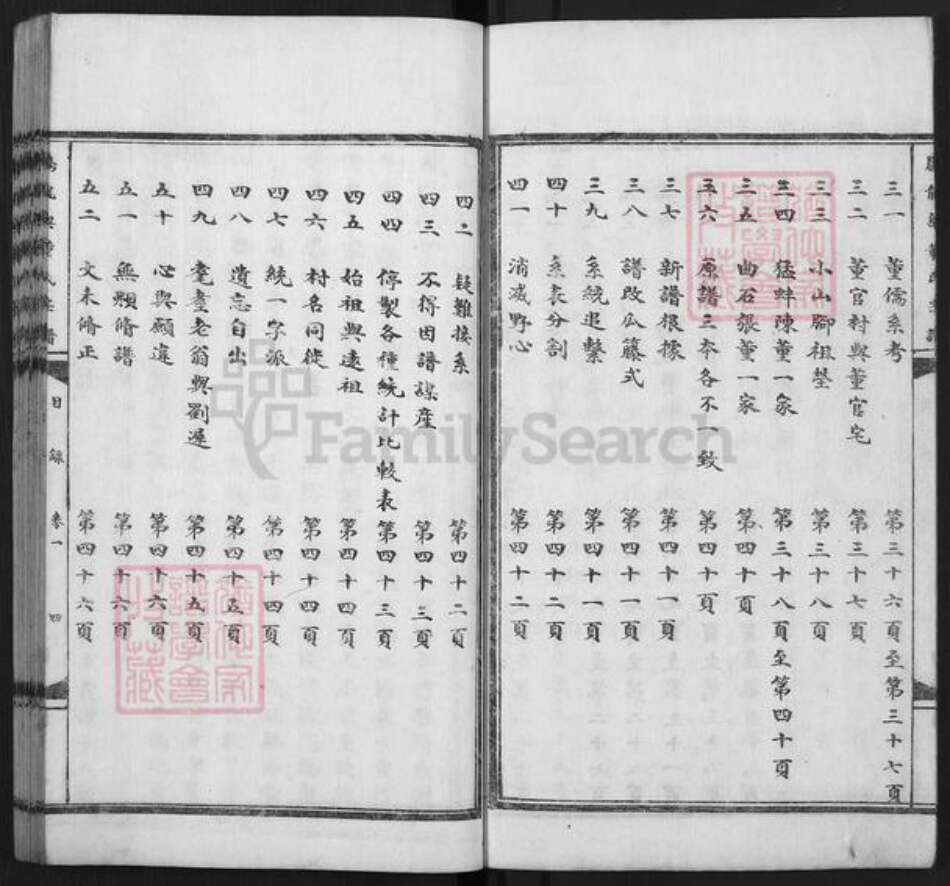 三一 董儒系考 第三十六頁至第三十七頁
三二 董官村與董官宅 第三十七頁
三三 小山腳祖塋 第三十八頁
三四 猛蚌陳董一家 第三十八頁至第四十頁
三五 曲石張董一家 第四十頁
三六 原譜三本各不一致 第四十頁
三七 新譜根據 第四十一頁
三八 譜改瓜籐式 第四十一頁
三九 系統追繫 第四十一頁
四十 系表分割 第四十二頁
四一 消滅野心 第四十二頁
四二 疑難接系 第四十二頁
四三 不得因譜謀產 第四十三頁
四四 停製各種統計比較表 第四十三頁
四五 始祖與遠祖 第四十四頁
四六 村名同徙 第四十四頁
四七 統一字派 第四十四頁
四八 遺忘自出 第四十五頁
四九 耄耋老翁與劉遲 第四十五頁
五十 心與願違 第四十六頁
五一 無顆脩譜 第四十六頁
五二 文未脩正 第四十六頁
目錄 卷一 四
FamilySearch